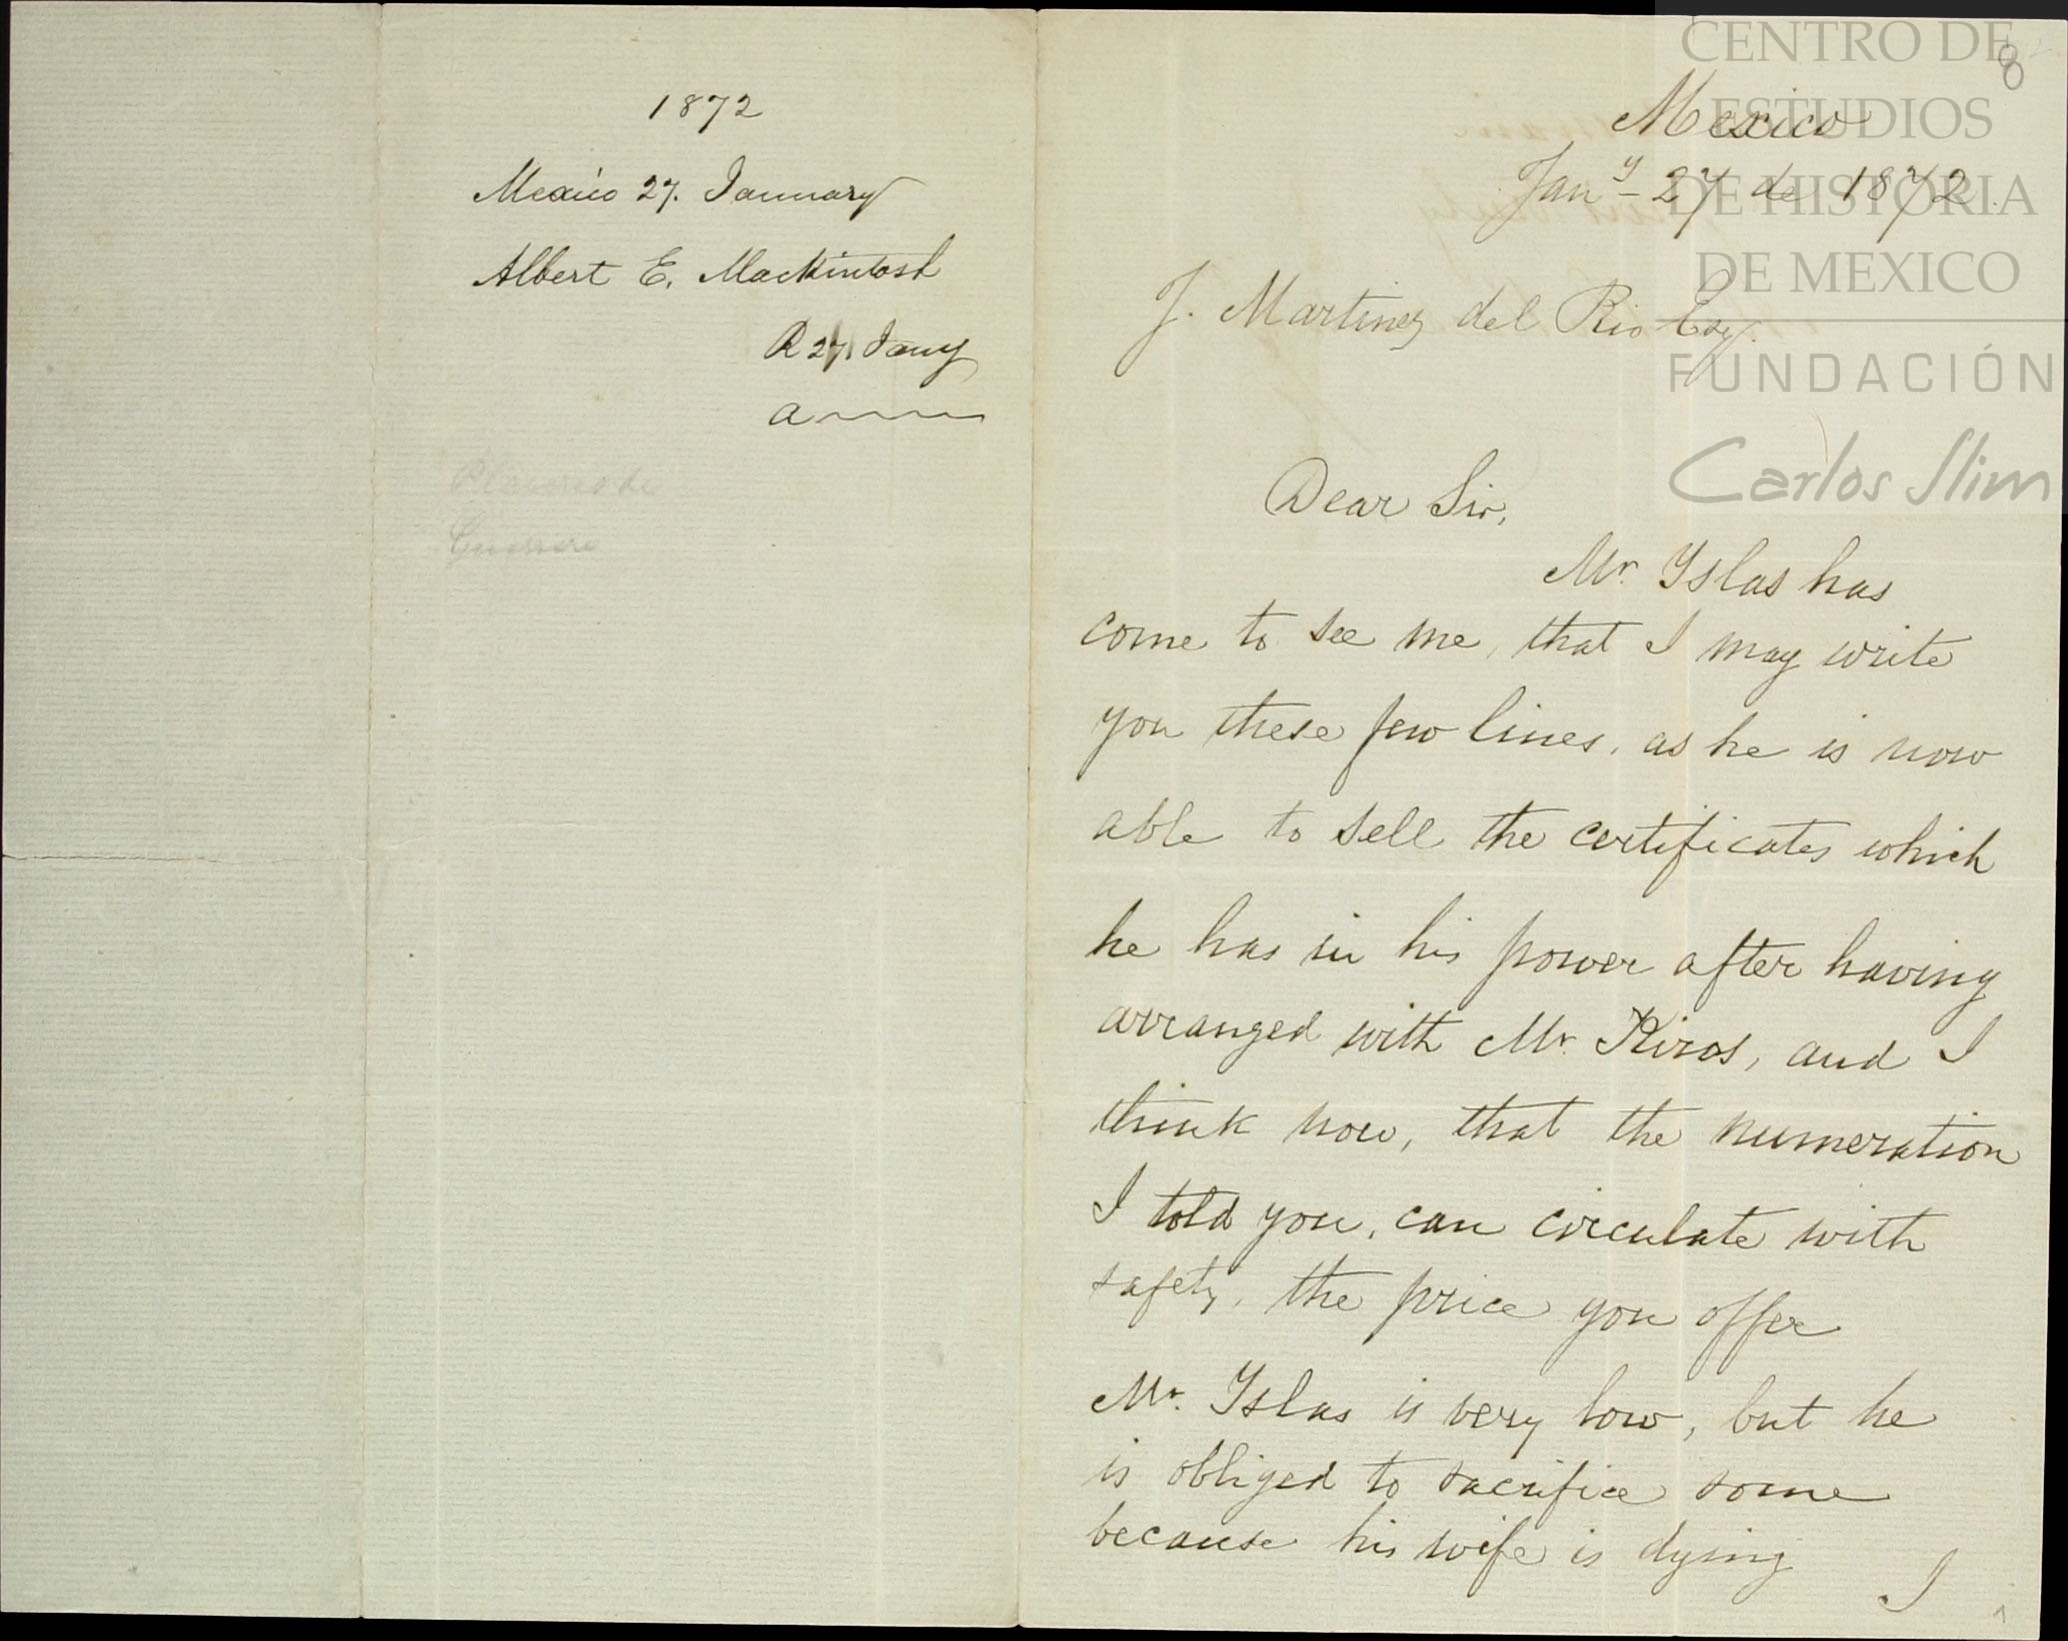 1872
Mexico 27. January
Albert E. Mackintosh
R 27. Jany
a
Placeres de
Guerrero
8
Mexico
Jany 27 de 1872.
J. Martinez del Rio Esq.
Dear Sir,
Mr. Yslas has
come to see me, that I may write
you these few lines, as he is now
able to sell the certificates which
he has in his power after having
arranged with Mr. Rivas, and I
think now, that the numeration
I told you, can circulate with
safety, the price you offer
Mr. Yslas is very low, but he
is obliged to sacrifice some
because his wife is dying
I
1
CENTRO DE
ESTUDIOS
DE HISTORIA
DE MEXICO
FUNDACIÓN
Carlos Slim